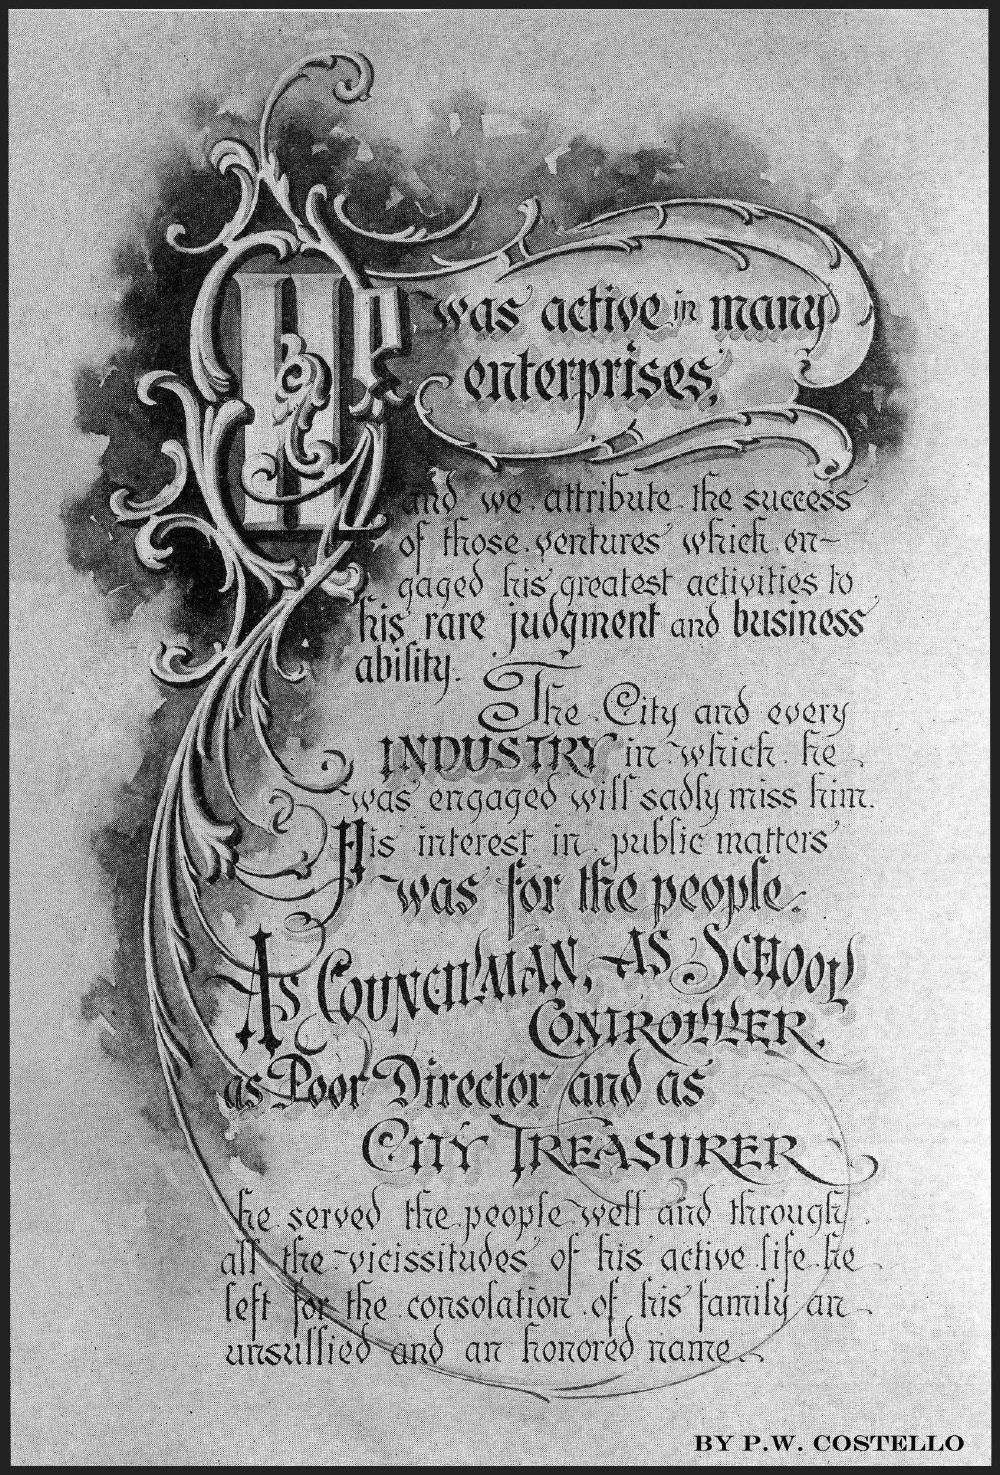 He was active in many
enterprises,
and we attribute the success
of those ventures which en-
gaged his greatest activities to
his rare judgment and business
ability.
The City and every
INDUSTRY in which he
was engaged will sadly miss him.
His interest in public matters
was for the people.
As COUNCILMAN, AS SCHOOL
CONTROLLER.
as Poor Director and as
CITY TREASURER
he served the people well and through
all the vicissitudes of his active life he
left for the consolation of his family an
unsullied and an honored name.
BY P.W. COSTELLO